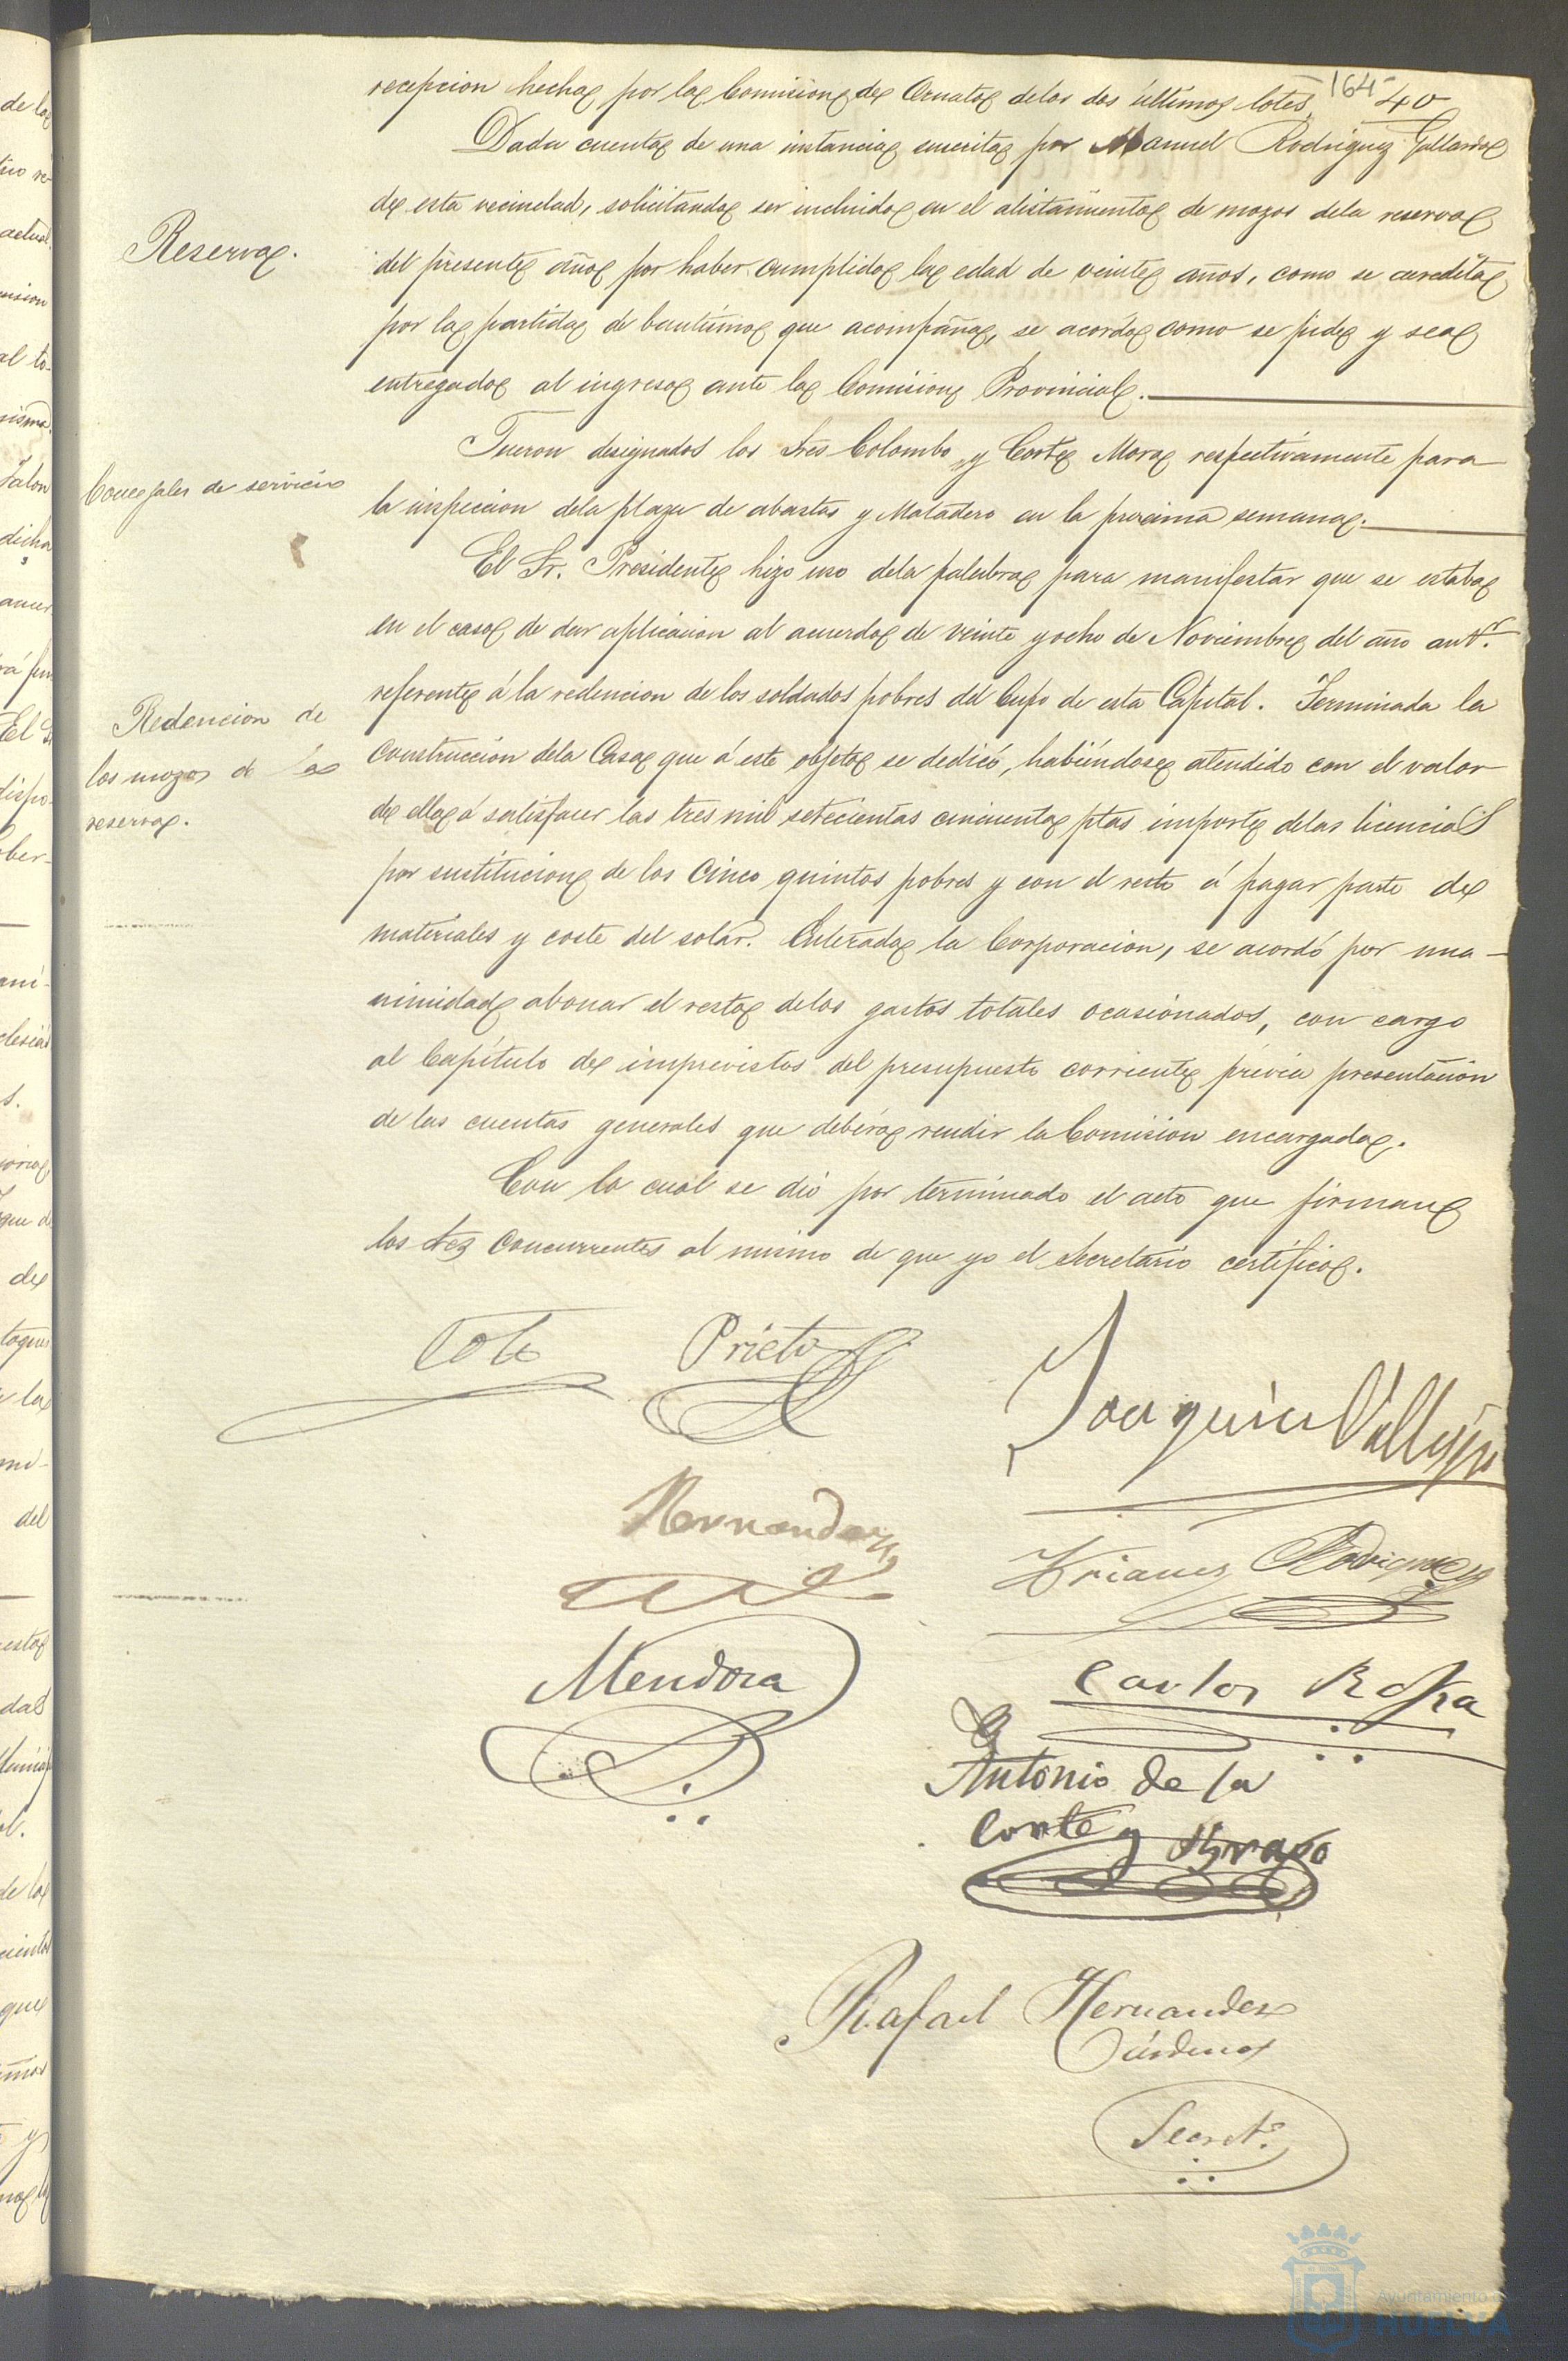 164 40
recepcion hecha por la Comision de Ornato delos dos últimos lotes.
Dada cuenta de una instancia suscrita por Manuel Rodriguez Gallardo
Reserva.
de esta vecindad, solicitando ser incluido en el alistamiento de mozos dela reserva
del presente año por haber cumplido la edad de veinte años, como se acredita
por la partida de bautismo que acompaña, se acordó como se pide y sea
entregado al ingreso ante la Comision Provincial.
Concejales de servicio
Fueron designados los Sres Colombo y Corte Mora respectivamente para
la inspeccion dela plaza de abastos y Matadero en la procsima semana.
El Sr. Presidente hizo uso dela palabra para manifestar que se estaba
en el caso de dar aplicacion al acuerdo de veinte y ocho de Noviembre del año antr.
Redencion de
los mozos de la
reserva.
referente á la redencion de los soldados pobres del Cupo de esta Capital. Terminada la
construccion dela Casa que á este objeto se dedicó, habiéndose atendido con el valor
de ella á satisfacer las tres mil setecientas cincuenta ptas importe delas licencias
por sustitucion de los Cinco quintos pobres y con el resto á pagar parte de
materiales y coste del solar. Enterada la Corporacion, se acordó por una-
nimidad abonar el resto delos gastos totales ocasionados, con cargo
al Capítulo de imprevistos del presupuesto corriente prévia presentacion
de las cuentas generales que deberá rendir la Comision encargada.
Con lo cual se dió por terminado el acto que firman
los Sres concurrentes al mismo de que yo el Secretario certifico.
Prieto
Joaquin Vallejo
Hernandez
Trianes Rodriguez
Mendoza
Carlos
Antonio de la
Corte y Bravo
Rafael Hernandez
Cárdenas
Secreto.
Ayuntamiento de
HUELVA